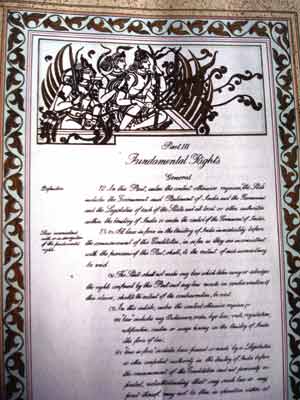 Part III
Fundamental Rights
General
Definition
12. In this Part, unless the context otherwise requires, "the State"
includes the Government and Parliament of India and the Government
and the Legislature of each of the States and all local or other authorities
within the territory of India or under the control of the Government of India.
Laws inconsistent
with or in derogation
of the fundamental
rights.
13. (1) All laws in force in the territory of India immediately before
the commencement of this Constitution, in so far as they are inconsistent
with the provisions of this Part, shall, to the extent of such inconsistency,
be void.
(2) The State shall not make any law which takes away or abridges
the rights conferred by this Part and any law made in contravention of
this clause shall, to the extent of the contravention, be void.
(3) In this article, unless the context otherwise requires,
(a) "law" includes any Ordinance, order, bye-law, rule, regulation,
notification, custom or usage having in the territory of India
the force of law;
(b) "laws in force" includes laws passed or made by a Legislature
or other competent authority in the territory of India before
the commencement of this Constitution and not previously re-
pealed, notwithstanding that any such law or any
part thereof may not be then in operation either at